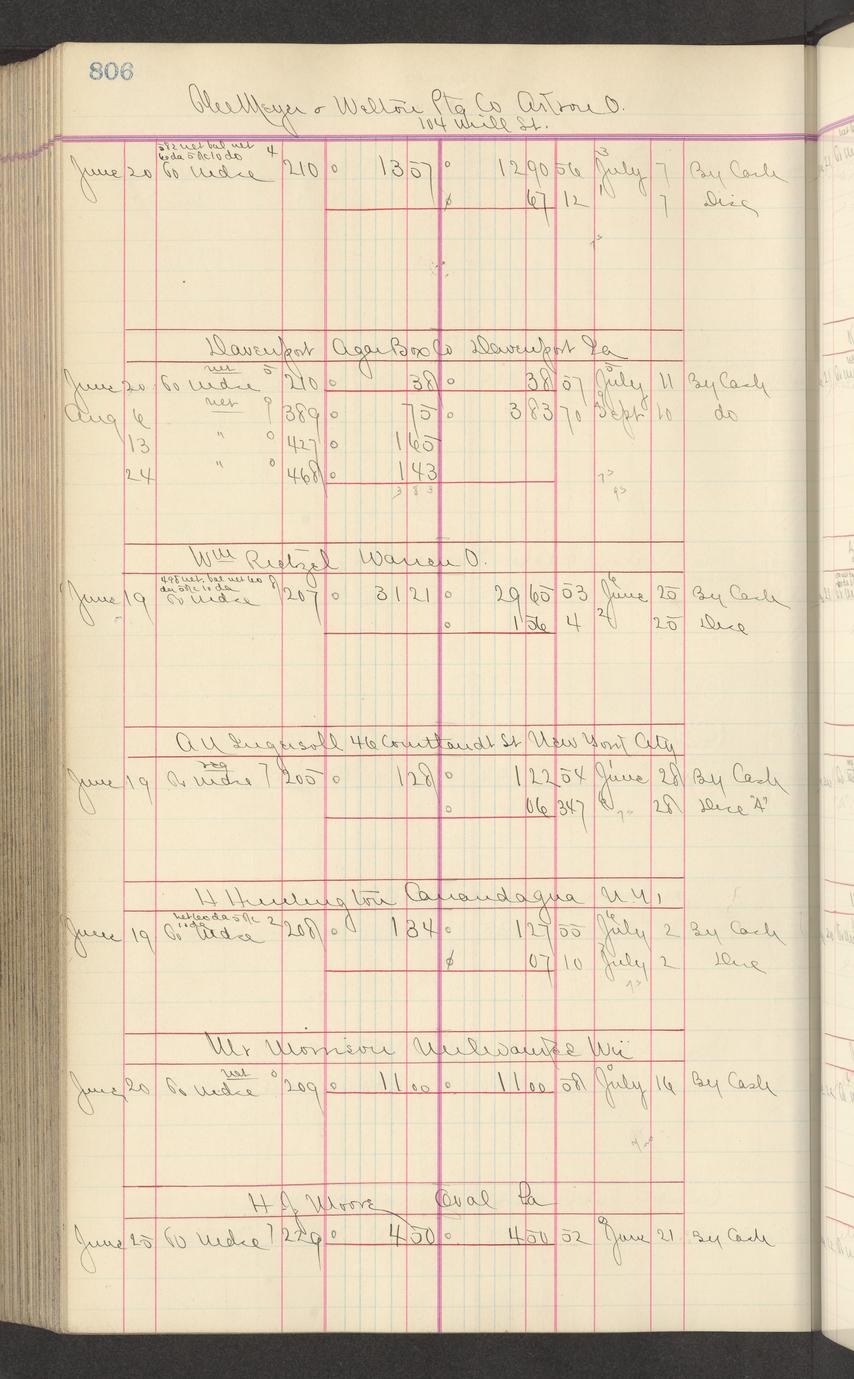 806
Meyer & Welton Ptg Co Akron O.
104 Mill St.
582 net bal net 4
60 da 5% 10 do
June 20 To Mdse 210 0 1357 0 1290 56 3 July 7 By Cash
67 12 1 7 Disc
Davenport Cigar Box Co Davenport Ia
net 5
June 20 To Mdse 210 0 38 0 38 57 5 July 11 By Cash
Aug 6 net 9 389 0 75 0 383 70 9 Sept 10 do
13 " 0 427 0 165
24 " 0 468 0 143
383
Wm Rietzel Warren O.
498 net. bal net 60 8
da 5% 10 da
June 19 To Mdse 207 0 3121 0 2965 53 6 June 25 By Cash
0 156 4 2 25 Disc
A U Ingersoll 46 Courtlandt St New York City
reg
June 19 To Mdse 7 205 0 128 0 122 54 June 28 By Cash
0 06 347 28 Disc "A"
H Huntington Canandagua N.Y.
net 60 da 5% 2
10 da
June 19 To Mdse 208 0 134 0 127 55 6 July 2 By Cash
07 10 July 2 Disc
Mr Morrison Milwaukee Wis
net 0
June 20 To Mdse 209 0 1100 0 1100 58 July 16 By Cash
H J Moore Oval Pa
June 25 To Mdse 7 229 0 450 0 450 52 9 June 21 By Cash